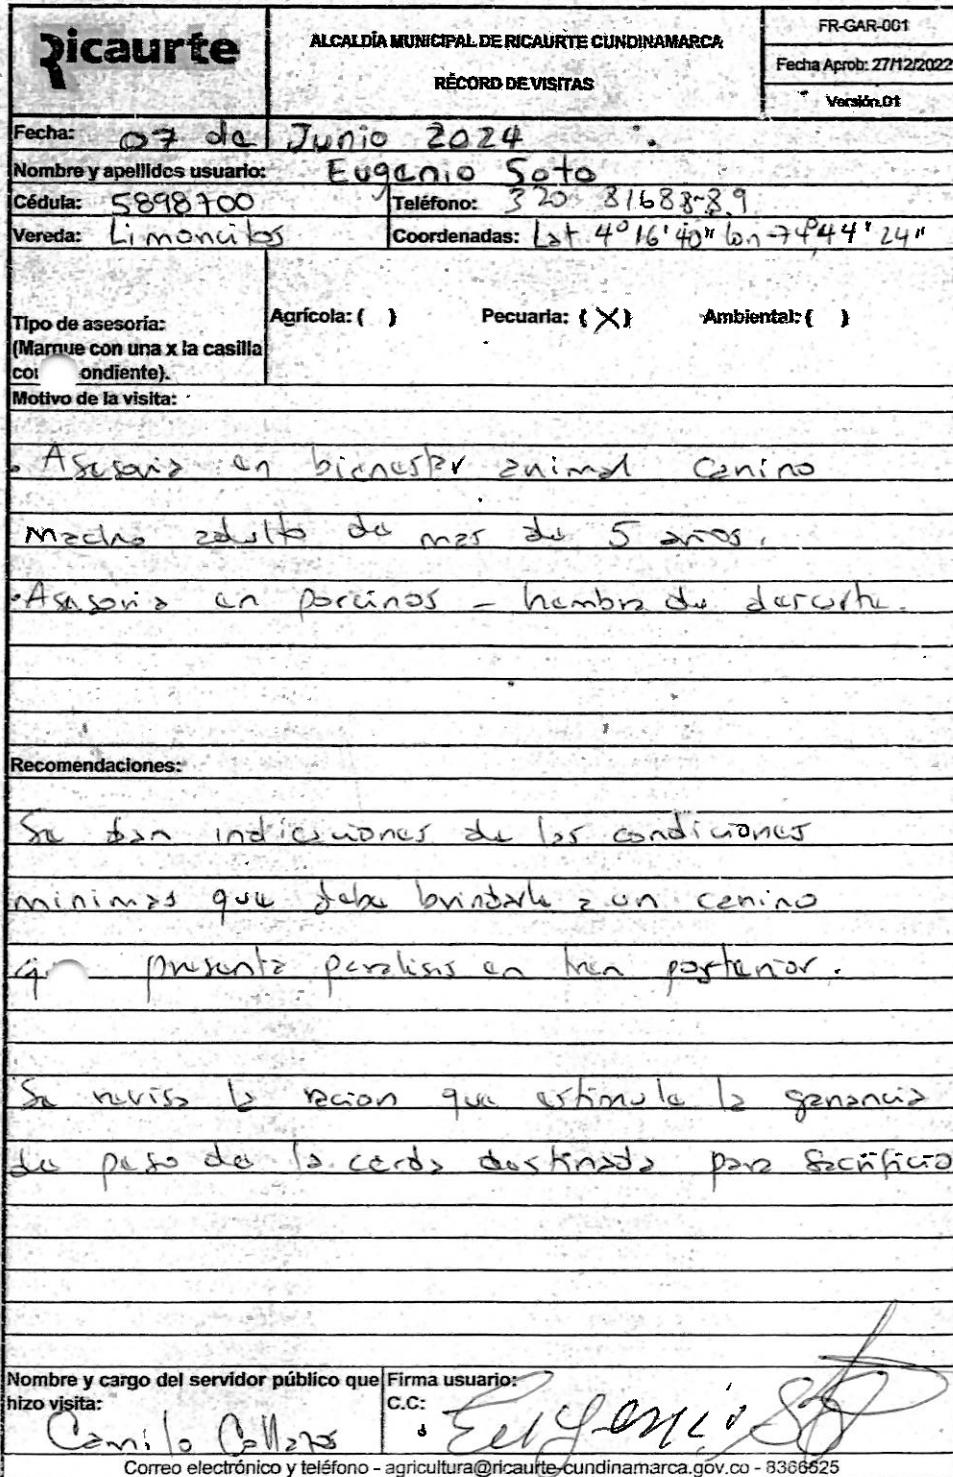 Ricaurte
ALCALDÍA MUNICIPAL DE RICAURTE CUNDINAMARCA
RÉCORD DE VISITAS
FR-GAR-001
Fecha Aprob: 27/12/2022
Versión.01
Fecha: 07 de Junio 2024
Nombre y apellidos usuario: Eugenio Soto
Cédula: 5898700 Teléfono: 320 81688-89
Vereda: Limoncitos Coordenadas: Lat 4°16'40" lon -74°44'24"
Tipo de asesoría:
(Marque con una x la casilla
ondiente).
Agrícola: ( ) Pecuaria: (X) Ambiental: ( )
Motivo de la visita:
• Asesoria en bienestar animal Canino
Macho adulto de mas de 5 años.
• Asesoria en porcinos - hembra de descarte.
Recomendaciones:
Se dan indicaciones de las condiciones
minimas que debe brindarle a un canino
presenta paralisis en tren posterior.
Se revisa la racion que estimule la ganancia
de peso de la cerda destinada para Sacrificio
Nombre y cargo del servidor público que
hizo visita:
Camilo Collazos
Firma usuario:
C.C:
Eugenio Soto
Correo electrónico y teléfono - agricultura@ricaurte-cundinamarca.gov.co - 8366525